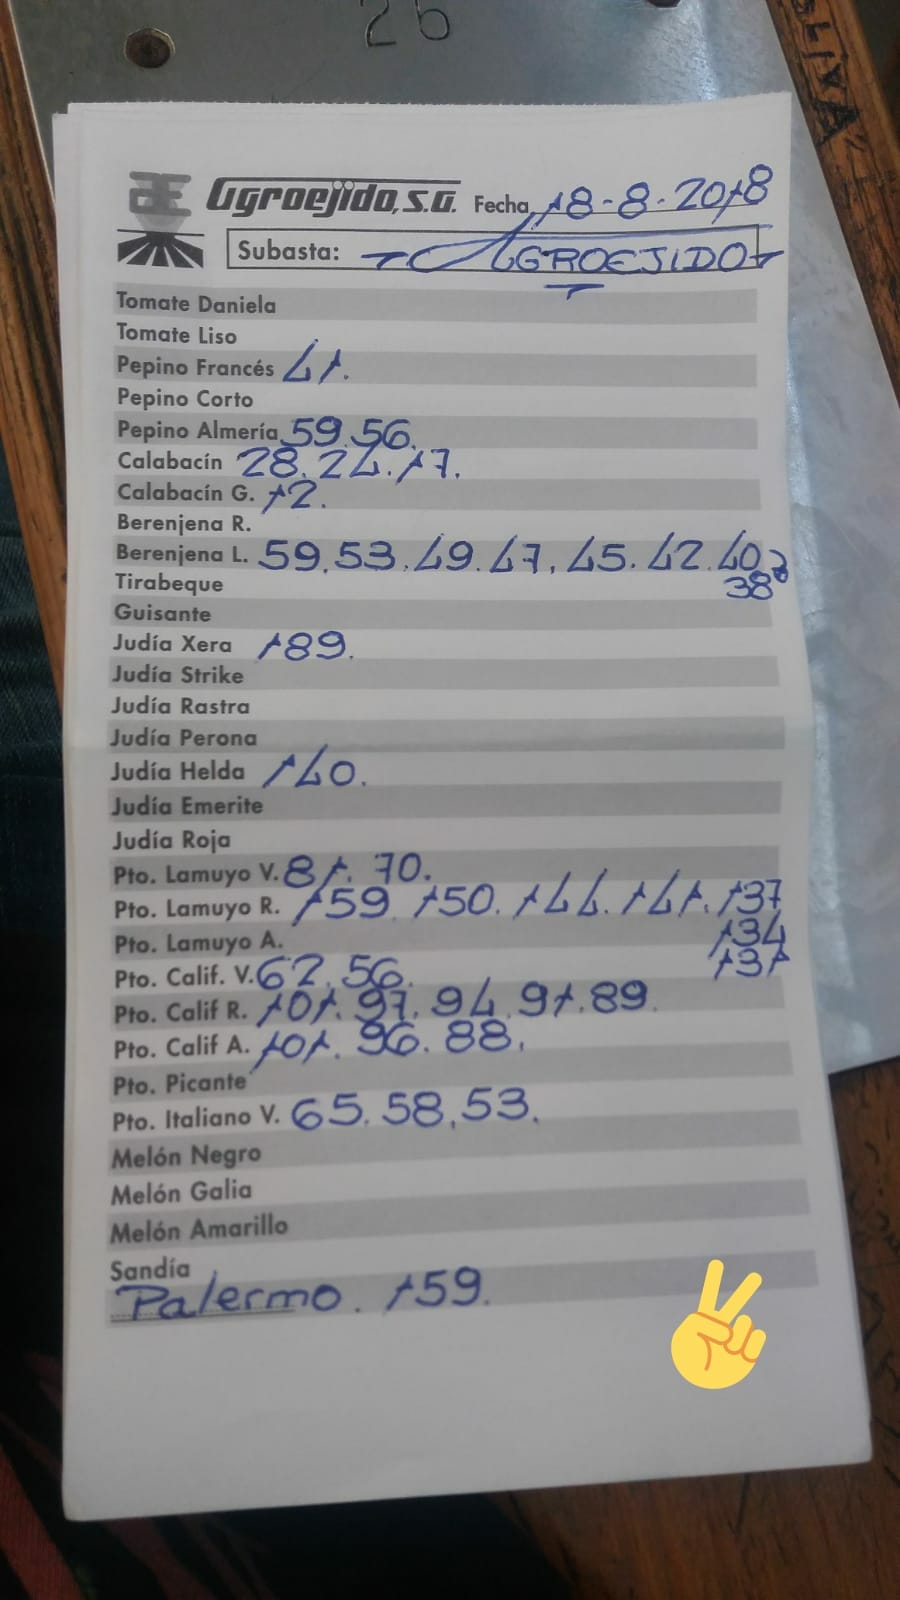 26
OLIVA
AE Agroejido, S.A. Fecha 18-8-2018
Subasta: AGROEJIDO
Tomate Daniela
Tomate Liso
Pepino Francés 41.
Pepino Corto
Pepino Almería 59.56.
Calabacín 28.24.17.
Calabacín G. 12.
Berenjena R.
Berenjena L. 59.53.49.47.45.42.40
38
Tirabeque
Guisante
Judía Xera 189.
Judía Strike
Judía Rastra
Judía Perona
Judía Helda 140.
Judía Emerite
Judía Roja
Pto. Lamuyo V. 81. 70.
Pto. Lamuyo R. 159. 150. 144. 141. 137
134
131
Pto. Lamuyo A.
Pto. Calif. V. 62.56.
Pto. Calif R. 101. 97. 94. 91. 89.
Pto. Calif A. 101. 96. 88.
Pto. Picante
Pto. Italiano V. 65.58.53.
Melón Negro
Melón Galia
Melón Amarillo
Sandía
Palermo. 159.